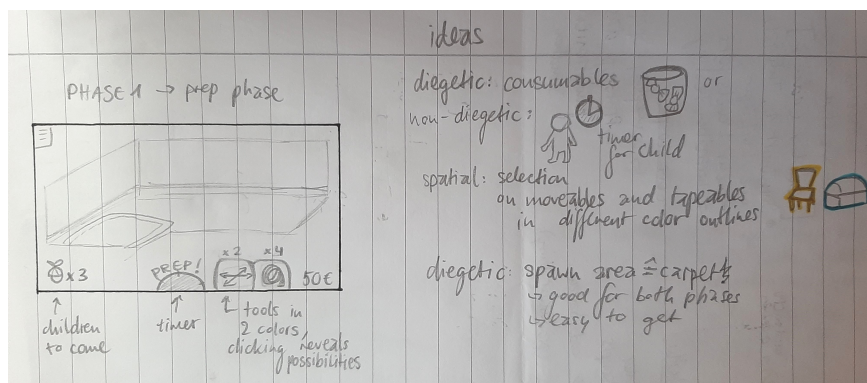 ideas
PHASE 1 → prep phase
x3
PREP!
x2
x4
50€
children
to come
timer
tools in
2 colors,
clicking reveals
possibilities
diegetic: consumables
or
non-diegetic:
timer
for child
spatial: selection
on moveables and tapeables
in different color outlines
diegetic: spawn area ≙ carpet
↳ good for both phases
↳ easy to get